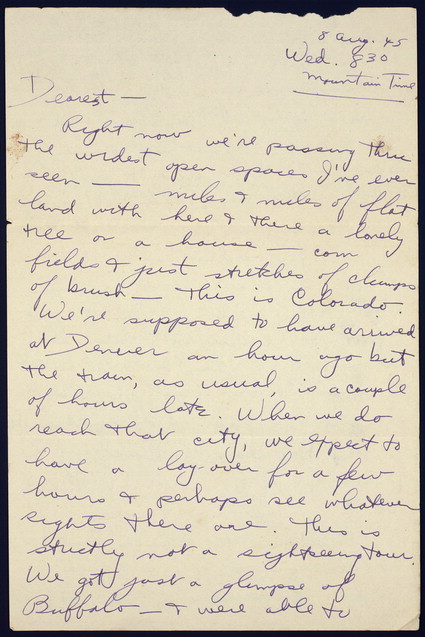 8 Aug. 45
Wed. 830
Mountain Time
Dearest —
Right now we're passing thru
the widest open spaces I've ever
seen — miles & miles of flat
land with here & there a lonely
tree or a house — corn
fields & just stretches of clumps
of brush — This is Colorado.
We're supposed to have arrived
at Denver an hour ago but
the train, as usual, is a couple
of hours late. When we do
reach that city, we expect to
have a lay-over for a few
hours & perhaps see whatever
sights there are. This is
strictly not a sightseeing tour.
We got just a glimpse of
Buffalo — & were able to